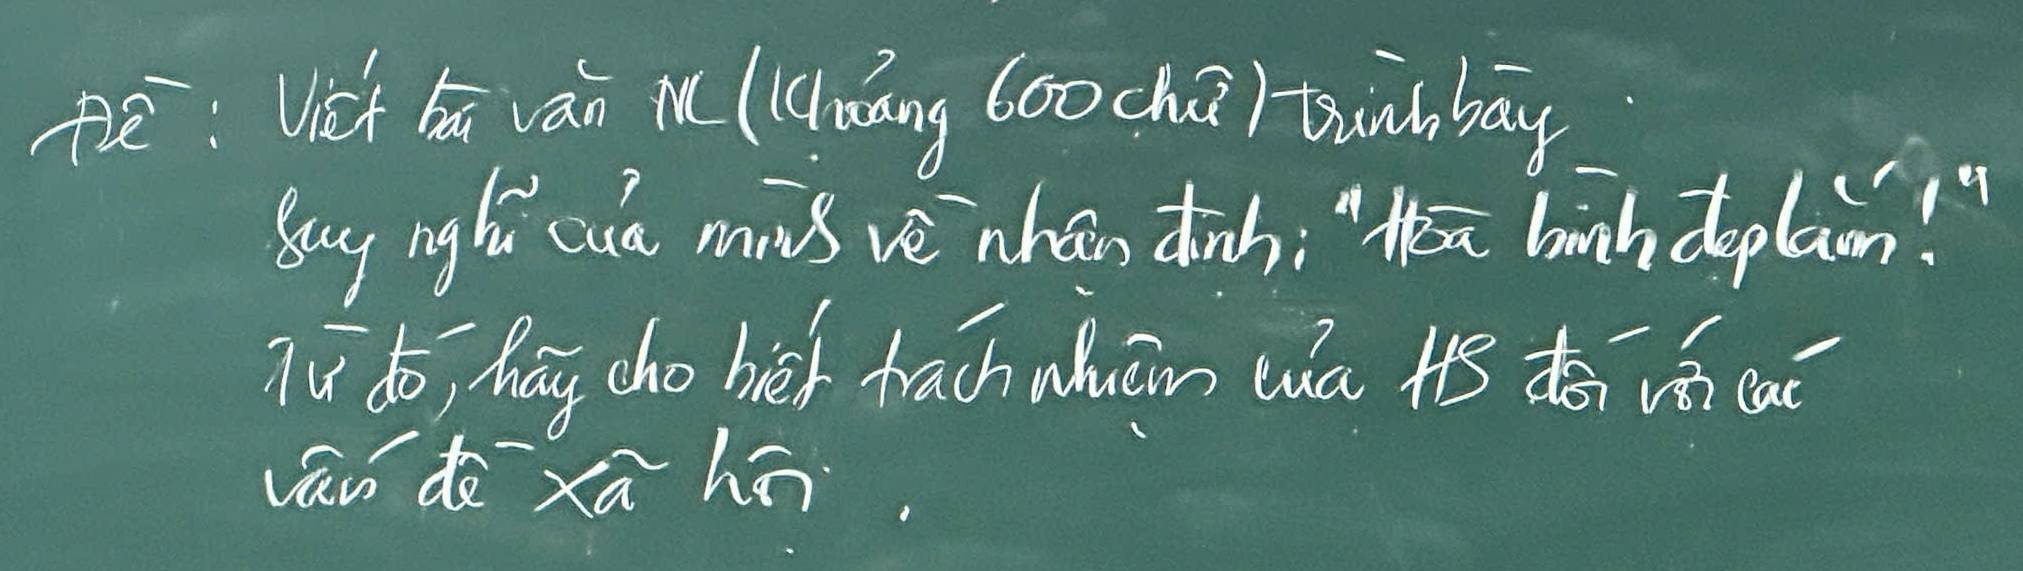 Đề: Viết bài văn NL (khoảng 600 chữ) trình bày
suy nghĩ của mình về nhận định: "Hoà bình đẹp lắm!"
Từ đó, hãy cho biết trách nhiệm của HS đối với các
vấn đề xã hội.